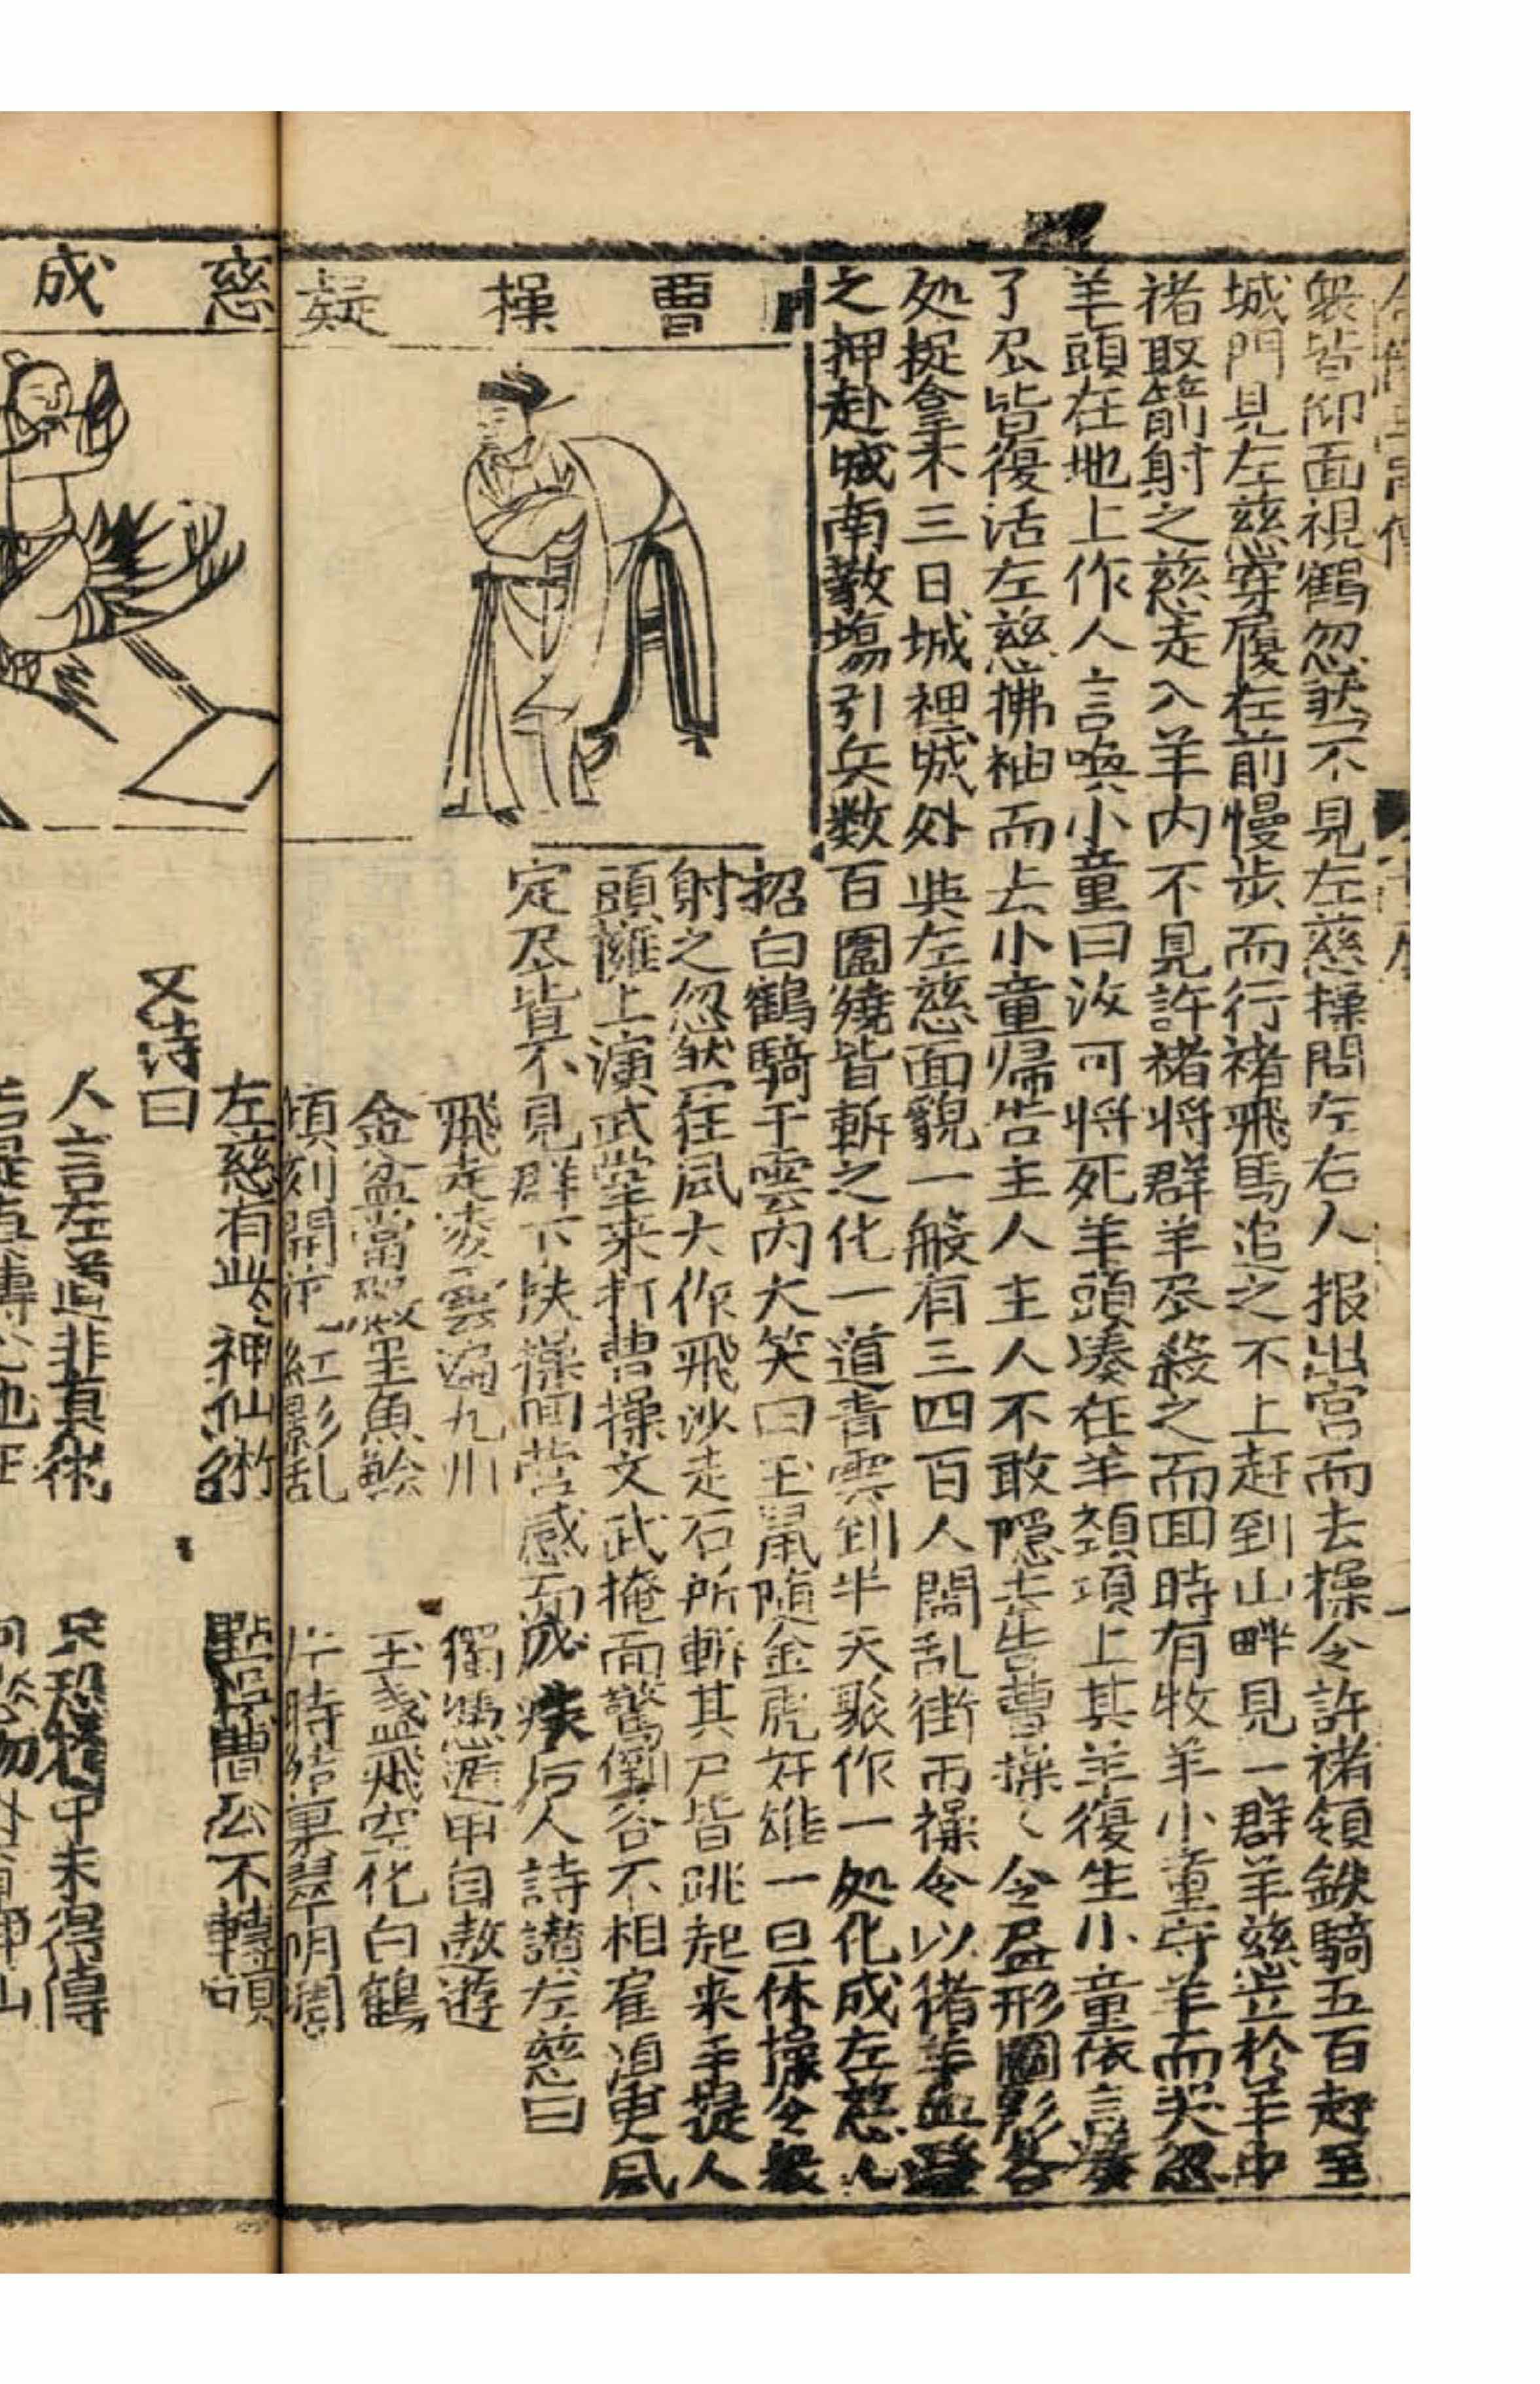 衆皆仰面視鶴忽然不見左慈操問左右人报出宮而去操令許褚領鉄騎五百赶至
城門見左慈穿履在前慢步而行褚飛馬追之不上赶到山畔見一群羊慈立於羊中
褚取箭射之慈走入羊内不見許褚将群羊尽殺之而囬時有牧羊小童守羊而哭忽
羊頭在地上作人言喚小童曰汝可将死羊頭凑在羊頚項上其羊復生小童依言湊
了尽皆復活左慈拂袖而去小童帰告主人主人不敢隠去告曹操〻令尽形圖影各
処捉拿未三日城裡城外與左慈面貌一般有三四百人閙乱街而操令以猪羊血潑
之押赴城南教塲引兵数百圍繞皆斬之化一道青雲到半天聚作一処化成左慈人
招白鶴騎于雲内大笑曰玉鼠随金虎奸雄一旦休操令衆
射之忽然狂風大作飛沙走石所斬其尸皆跳起来手提人
頭擁上演武堂来打曹操文武掩面驚倒各不相雇須更風
定尽皆不見群下扶操囬営感而成疾后人詩讃左慈曰
飛走凌雲遍九川
獨憑遁甲自遨遊
金盆當殿里魚鱠
玉盞飛空化白鶴
頃刻開花紅影乱
片時結菓翠明凋
曹操疑
慈成
左慈有此神仙術
點悟曹公不轉頭
又诗曰
人言左道非真術
只恐其中未得傳